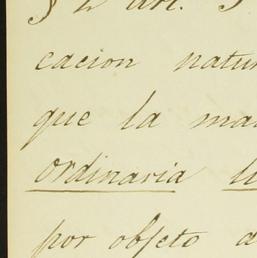 § 2 art.
cacion natur
que la ma
ordinaria li
por objeto a